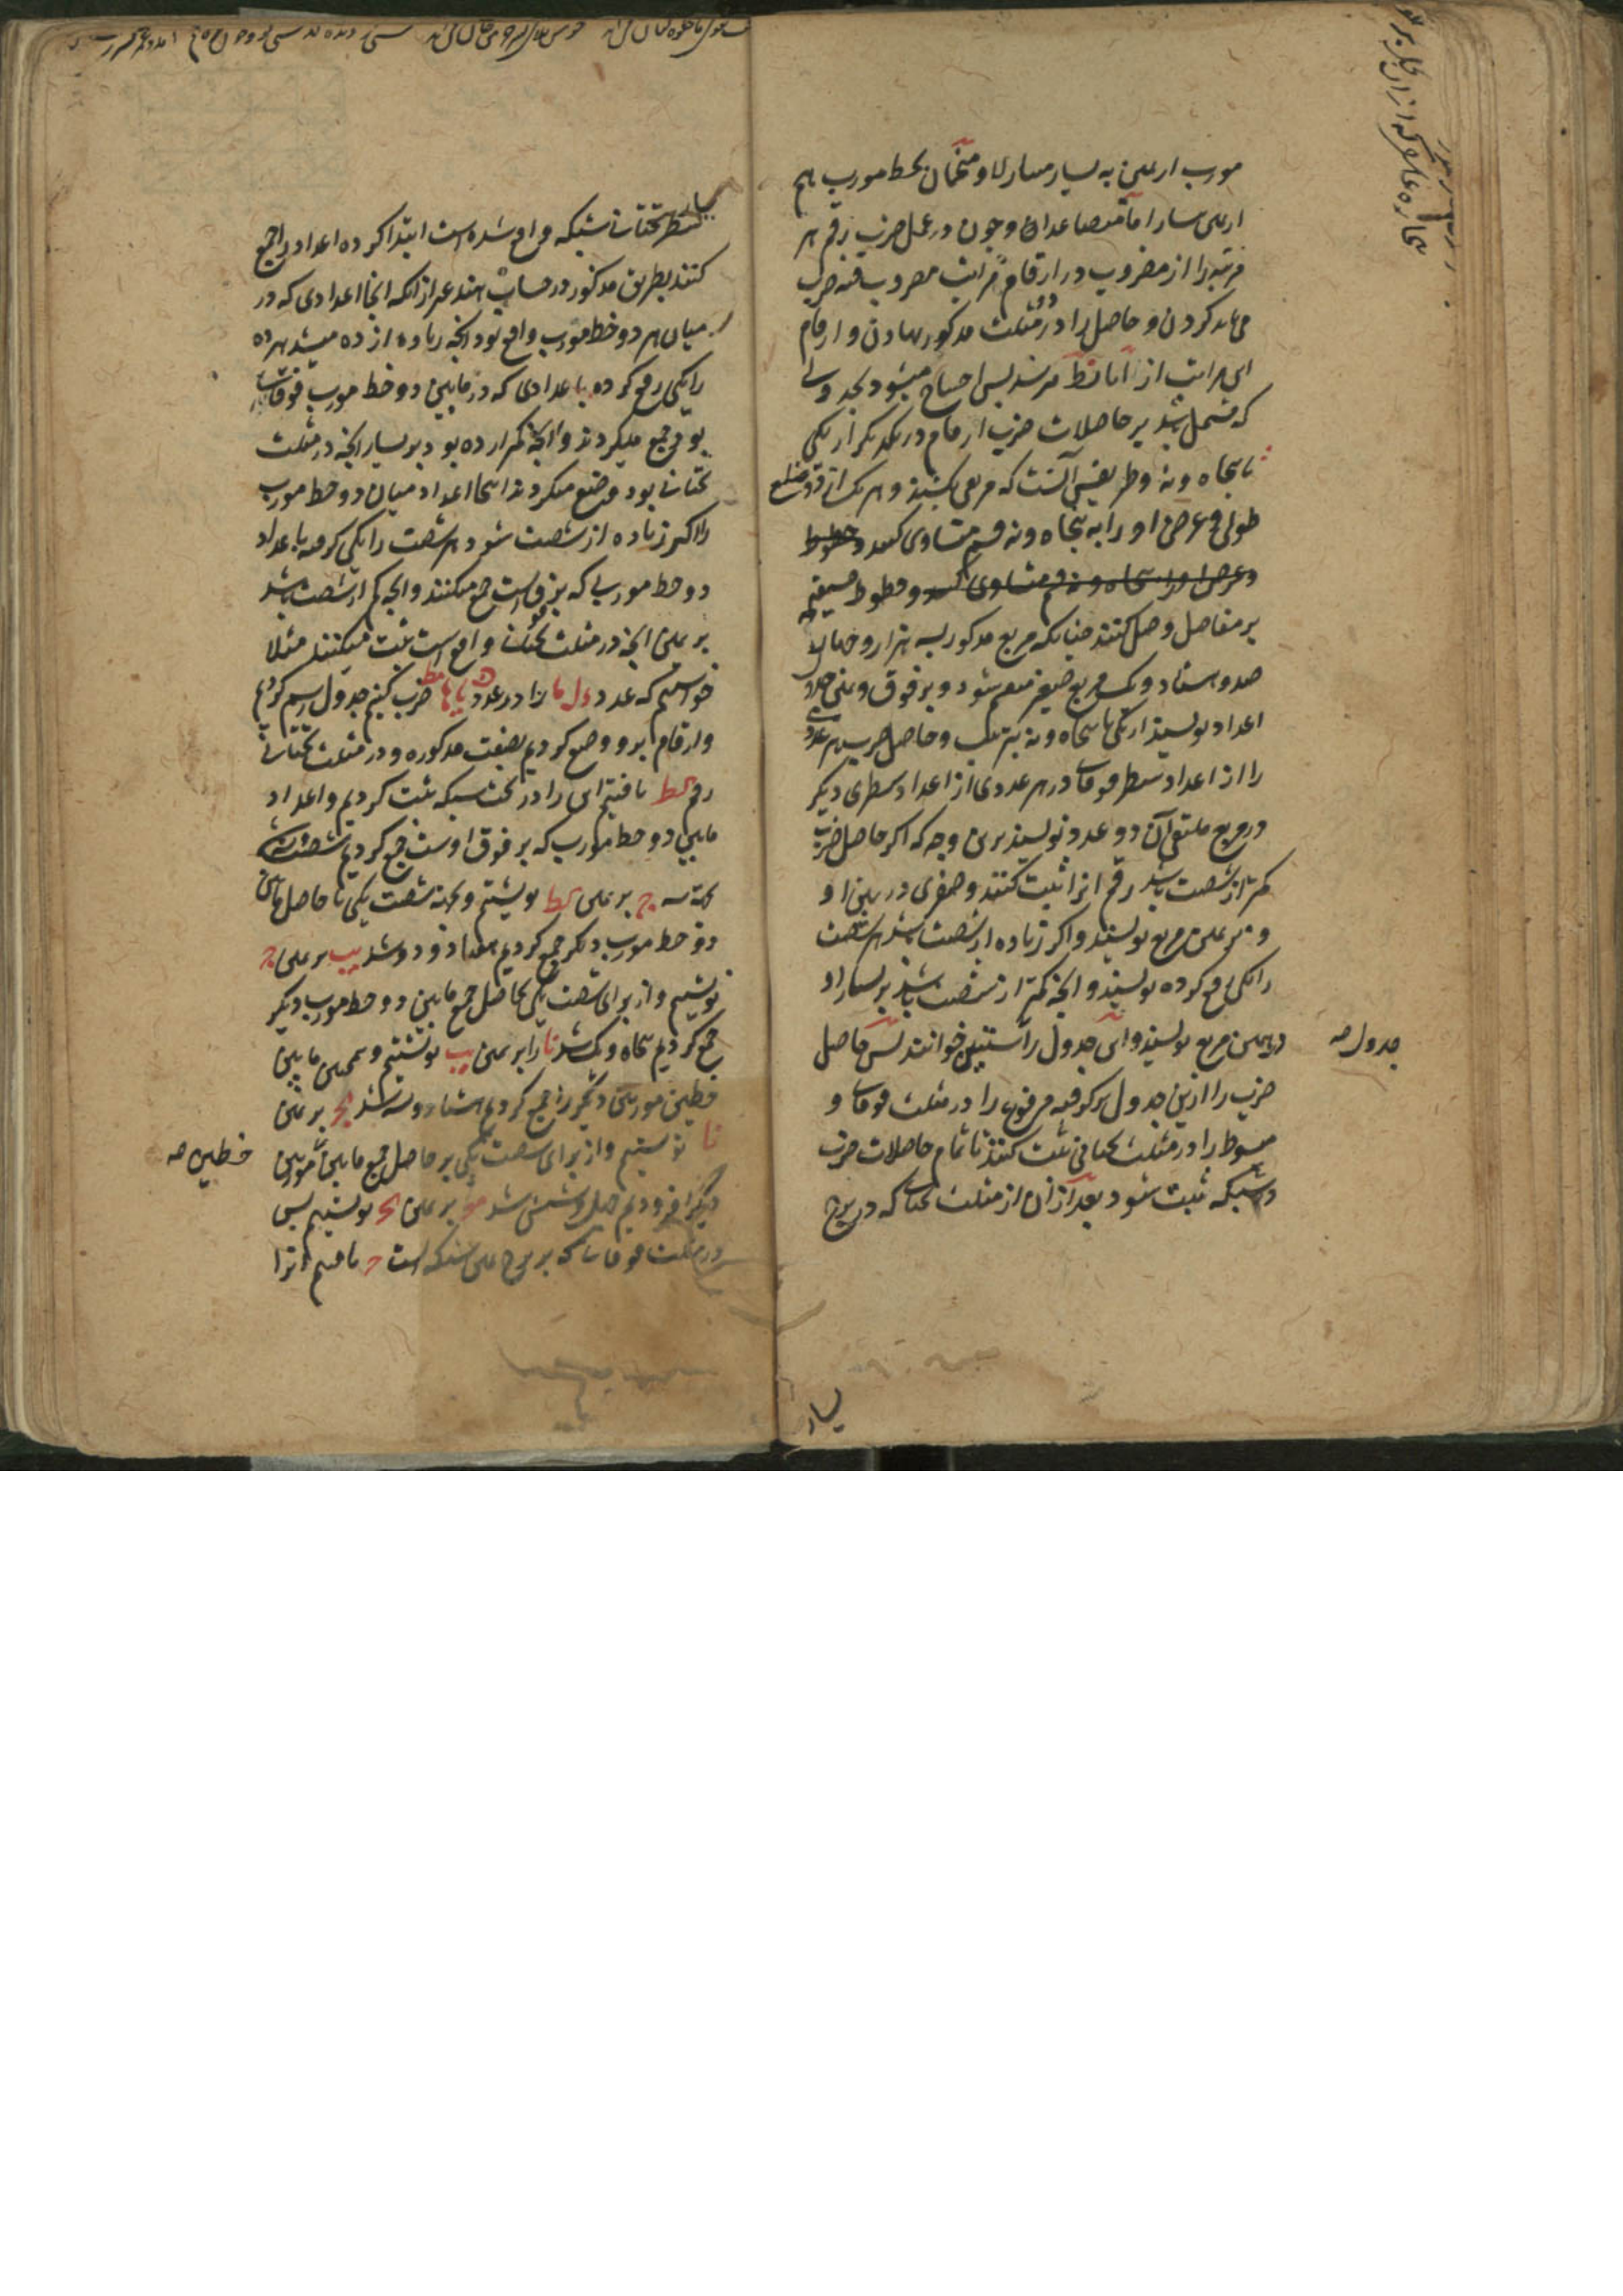 مورب از یمین به یسار متنازلا و متحاذیان بخط مورب هم
از یمین یسار اما متصاعدان و چون در عمل ضرب رقم هر
مرتبه را از مضروب در ارقام مراتب مضروب فیه ضرب
می باید کردن و حاصل را در دو مثلث مذکور نهادن و ارقام
این مراتب از ا تا نط میرسد پس احتیاج میشود بجدولی
که مشتمل باشد بر حاصلات ضرب ارقام در یکدیگر از یکی
تا پنجاه و نه و طریقش آنست که مربعی بکشند و هر یک از دو ضلع
طولی و عرضی او را به پنجاه و نه قسم متساوی کنند و خطوط
و عرض او را پنجاه و نه قسم متساوی کنند و خطوط مستقیم
بر مفاصل وصل کنند چنانکه مربع مذکور بسه هزار و چهار
صد و هشتاد و یک مربع صغیر منقسم شود و بر فوق و یمین جدول
اعداد نویسند از یکی تا پنجاه و نه بترتیب و حاصل ضرب هر عددی
را از اعداد سطر فوقانی در هر عددی از اعداد سطری دیگر
در مربع ملتقی آن دو عدد نویسند برین وجه که اگر حاصل ضرب
کمتر از شصت باشد رقم انرا ثبت کنند و صفری در یمین او
و بر یمین مربع نویسند و اگر زیاده از شصت باشد هر شصت
را یکی رفع کرده نویسند و انچه کمتر از شصت باشد بر یسار او
در یمین مربع نویسند و این جدول را ستینی خوانند پس حاصل
جدول صه
ضرب را ازین جدول بر گرفته مرفوع را در مثلث فوقانی و
مبسوط را در مثلث تحتانی ثبت کنند تا تمام حاصلات ضرب
در شبکه ثبت شود بعد از ان از مثلث تحتانی که در برج
یسار
یسار سطر تحتانی شبکه واقع شده است ابتدا کرده اعداد را جمع
کنند بطریق مذکور در حساب هند غیر از انکه انجا اعدادی که در
میان هر دو خط مورب واقع بود انچه زیاده از ده میشد هر ده
را یکی رفع کرده با عدادی که در مابین دو خط مورب فوقانی
بود جمع میکردند و انچه کمتر از ده بود بر یسار انچه در مثلث
تحتانی بود وضع میکردند اینجا اعداد میان دو خط مورب
را اگر زیاده از شصت شود هر شصت را یکی گرفته با عداد
دو خط موربی که بر فوق است جمع میکنند و انچه کم از شصت باشد
بر یمین انچه در مثلث تحتانی واقع است ثبت میکنند مثلا
خواستیم که عدد را در عدد ضرب کنیم جدول رسم کردیم
و ارقام برو وضع کردیم بصفت مذکوره و در مثلث تحتانی
رقم لط یافتیم این را در تحت شبکه ثبت کردیم و اعداد
مابین دو خط مورب که بر فوق اوست جمع کردیم شصت و
سه ج بر یمین لط نوشتیم و بجهة شصت یکی با حاصل مابین
دو خط مورب دیگر جمع کردیم هفتاد و دو شد یب بر یمین ج
نوشتیم و از برای شصت یکی بحاصل جمع مابین دو خط مورب دیگر
جمع کردیم پنجاه و یک شد نا را بر یمین یب نوشتیم و همچنین مابین
خطین موربین دیگر را جمع کردیم هشتاد و سه شد کج بر یمین
نا نوشتیم و از برای شصت یکی بر حاصل جمع مابین موربین
خطین صه
دیگر افزودیم چهل و شش شد مو بر یمین کج نوشتیم پس
در مثلث فوقانی که بر برج یمین شبکه است یافتیم انرا